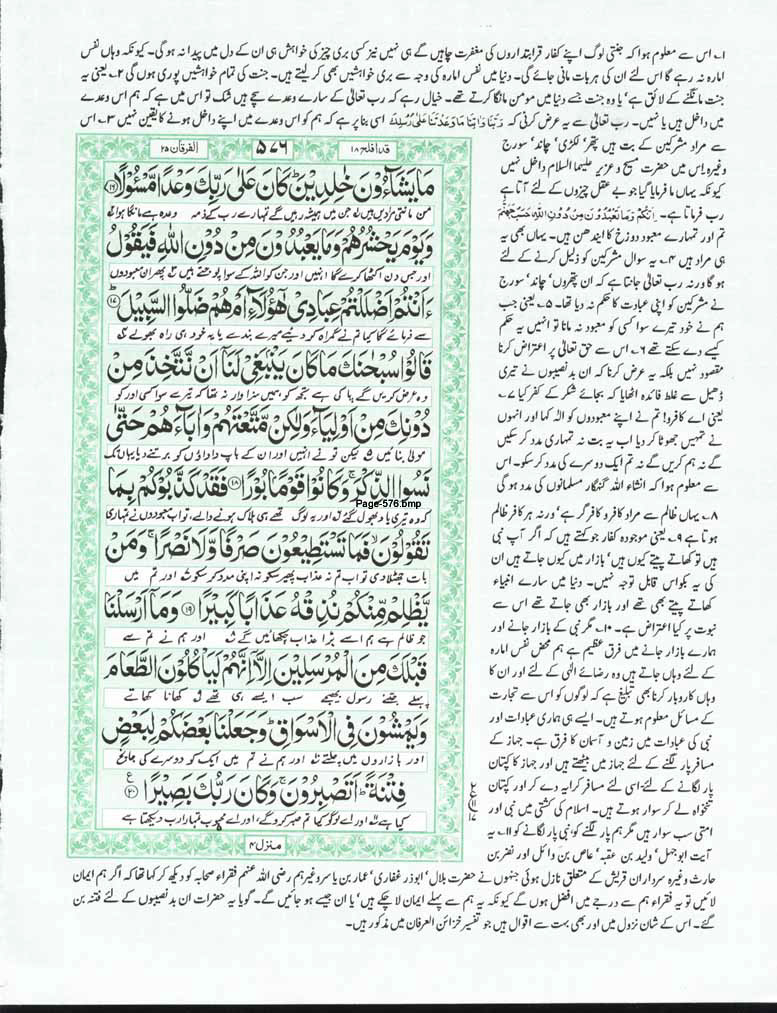 ۱۔ اس سے معلوم ہوا کہ جنتی لوگ اپنے کفار قرابتداروں کی مغفرت چاہیں گے ہی نہیں نیز کسی بری چیز کی خواہش ہی ان کے دل میں پیدا نہ ہو گی۔ کیونکہ وہاں نفس
امارہ نہ رہے گا اس لئے ان کی ہر بات مانی جائے گی۔ دنیا میں نفس امارہ کی وجہ سے بری خواہشیں بھی کر لیتے ہیں۔ جنت کی تمام خواہشیں پوری ہوں گی ۲۔ یعنی یہ
جنت مانگنے کے لائق ہے' یا وہ جنت جسے دنیا میں مومن مانگا کرتے تھے۔ خیال رہے کہ رب تعالیٰ کے سارے وعدے سچے ہیں شک تو اس میں ہے کہ ہم اس وعدے
میں داخل ہیں یا نہیں۔ رب تعالیٰ سے یہ عرض کرنی کہ رَبَّنَا وَاٰتِنَا مَا وَعَدْتَّنَا عَلٰى رُسُلِكَ اسی بنا پر ہے کہ ہم کو اس وعدے میں اپنے داخل ہونے کا یقین نہیں ۳۔ اس
سے مراد مشرکین کے بت ہیں پتھر' لکڑی' چاند' سورج
وغیرہ۔ اس میں حضرت مسیح و عزیر علیہما السلام داخل نہیں
کیونکہ یہاں ما فرمایا گیا جو بے عقل چیزوں کے لئے آتا ہے
رب فرماتا ہے۔ اِنَّكُمْ وَمَا تَعْبُدُوْنَ مِنْ دُوْنِ اللّٰهِ حَصَبُ جَهَنَّمَ
تم اور تمہارے معبود دوزخ کا ایندھن ہیں۔ یہاں بھی یہ
ہی مراد ہیں ۴۔ یہ سوال مشرکین کو ذلیل کرنے کے لئے
ہو گا ورنہ رب تعالیٰ جانتا ہے کہ ان پتھروں' چاند' سورج
نے مشرکین کو اپنی عبادت کا حکم نہ دیا تھا۔ ۵۔ یعنی جب
ہم نے خود تیرے سوا کسی کو معبود نہ مانا تو انہیں یہ حکم
کیسے دے سکتے تھے ۶۔ اس سے حق تعالیٰ پر اعتراض کرنا
مقصود نہیں بلکہ یہ عرض کرنا کہ ان بدنصیبوں نے تیری
ڈھیل سے غلط فائدہ اٹھایا کہ بجائے شکر کے کفر کیا ۷۔
یعنی اے کافرو! تم نے اپنے معبودوں کو الٰہ کہا اور انہوں
نے تمہیں جھوٹا کر دیا اب یہ بت نہ تمہاری مدد کر سکیں
گے نہ ہم کریں گے نہ تم ایک دوسرے کی مدد کر سکو۔ اس
سے معلوم ہوا کہ انشاء اللہ گنہگار مسلمانوں کی مدد ہو گی
۸۔ یہاں ظالم سے مراد کافر و کافر گر ہے' ورنہ ہر کافر ظالم
ہوتا ہے ۹۔ یعنی موجودہ کفار جو کہتے ہیں کہ اگر آپ نبی
ہیں تو کھاتے پیتے کیوں ہیں' بازار میں کیوں جاتے ہیں ان
کی یہ بکواس قابل توجہ نہیں۔ دنیا میں سارے انبیاء
کھاتے پیتے بھی تھے اور بازار بھی جاتے تھے اس سے
نبوت پر کیا اعتراض ہے۔ ۱۰۔ مگر نبی کے بازار جانے اور
ہمارے بازار جانے میں فرق عظیم ہے ہم محض نفس امارہ
کے لئے وہاں جاتے ہیں وہ رضائے الٰہی کے لئے اور ان کا
وہاں کاروبار کرنا بھی تبلیغ ہے کہ لوگوں کو اس سے تجارت
کے مسائل معلوم ہوتے ہیں۔ ایسے ہی ہماری عبادات اور
نبی کی عبادات میں زمین و آسمان کا فرق ہے۔ جہاز کے
مسافر پار لگنے کے لئے جہاز میں بیٹھتے ہیں اور جہاز کا کپتان
پار لگانے کے لئے' اسی لئے مسافر کرایہ دے کر اور کپتان
تنخواہ لے کر سوار ہوتے ہیں۔ اسلام کی کشتی میں نبی اور
امتی سب سوار ہیں مگر ہم پار لگنے کو' نبی پار لگانے کو ۱۱۔ یہ
آیت ابوجہل' ولید بن عقبہ' عاص بن وائل اور نضر بن
قد افلح ۱۸
۵۷۶
الفرقان ۲۵
مَا يَشَآءُوْنَ خٰلِدِيْنَ ؕ كَانَ عَلٰى رَبِّكَ وَعْدًا مَّسْـُٔوْلًا ۝۱۶
من مانتی مرادیں ہیں لہ جن میں ہمیشہ رہیں گے تمہارے رب کے ذمہ وعدہ ہے مانگا ہوا ٹہ
وَيَوْمَ يَحْشُرُهُمْ وَمَا يَعْبُدُوْنَ مِنْ دُوْنِ اللّٰهِ فَيَقُوْلُ
اور جس دن اکٹھا کرے گا انہیں اور جن کو اللہ کے سوا پوجتے ہیں ۳ پھر ان معبودوں
ءَاَنْتُمْ اَضْلَلْتُمْ عِبَادِيْ هٰٓؤُلَآءِ اَمْ هُمْ ضَلُّوا السَّبِيْلَ ۝۱۷
سے فرمائے گا کیا تم نے گمراہ کر دیئے میرے بندے یا یہ خود ہی راہ بھولے ۴
قَالُوْا سُبْحٰنَكَ مَا كَانَ يَنْۢبَغِيْ لَنَآ اَنْ نَّتَّخِذَ مِنْ
وہ عرض کریں گے پاکی ہے تجھ کو ہمیں سزاوار نہ تھا کہ تیرے سوا کسی اور کو
دُوْنِكَ مِنْ اَوْلِيَآءَ وَلٰكِنْ مَّتَّعْتَهُمْ وَاٰبَآءَهُمْ حَتّٰى
مولیٰ بنائیں ۵ لیکن تو نے انہیں اور ان کے باپ داداؤں کو برتنے دیا یہاں تک
نَسُوا الذِّكْرَ ۚ وَكَانُوْا قَوْمًۢا بُوْرًا ۝۱۸ فَقَدْ كَذَّبُوْكُمْ بِمَا
Page-576.bmp
کہ وہ تیری یاد بھول گئے ۶ اور یہ لوگ تھے ہی ہلاک ہونے والے، تو اب معبودوں نے تمہاری
تَقُوْلُوْنَ ۙ فَمَا تَسْتَطِيْعُوْنَ صَرْفًا وَّلَا نَصْرًا ۚ وَمَنْ
بات جھٹلا دی تو اب تم نہ عذاب پھیر سکو نہ اپنی مدد کر سکو ۷ اور تم میں
يَّظْلِمْ مِّنْكُمْ نُذِقْهُ عَذَابًا كَبِيْرًا ۝۱۹ وَمَآ اَرْسَلْنَا
جو ظالم ہے ہم اسے بڑا عذاب چکھائیں گے ۸ اور ہم نے تم سے
قَبْلَكَ مِنَ الْمُرْسَلِيْنَ اِلَّآ اِنَّهُمْ لَيَاْكُلُوْنَ الطَّعَامَ
پہلے جتنے رسول بھیجے سب ایسے ہی تھے ۹ کھانا کھاتے
وَيَمْشُوْنَ فِي الْاَسْوَاقِ ؕ وَجَعَلْنَا بَعْضَكُمْ لِبَعْضٍ
اور بازاروں میں چلتے ۱۰ اور ہم نے تم میں ایک کو دوسرے کی جانچ
فِتْنَةً ؕ اَتَصْبِرُوْنَ ۚ وَكَانَ رَبُّكَ بَصِيْرًا ۝۲۰ ع
کیا ہے ۱۱ اور اے لوگو کیا تم صبر کرو گے، اور اے محبوب تمہارا رب دیکھتا ہے
منزل ۴
حارث وغیرہ سرداران قریش کے متعلق نازل ہوئی جنہوں نے حضرت بلال' ابوذر غفاری' عمار بن یاسر وغیرہم رضی اللہ عنہم فقراء صحابہ کو دیکھ کر کہا تھا کہ اگر ہم ایمان
لائیں تو یہ فقراء ہم سے درجے میں افضل ہوں گے کیونکہ یہ ہم سے پہلے ایمان لا چکے ہیں' یا ان جیسے ہو جائیں گے۔ گویا یہ حضرات ان بدنصیبوں کے لئے فتنہ بن
گئے۔ اس کے شان نزول میں اور بھی بہت سے اقوال ہیں جو تفسیر خزائن العرفان میں مذکور ہیں۔